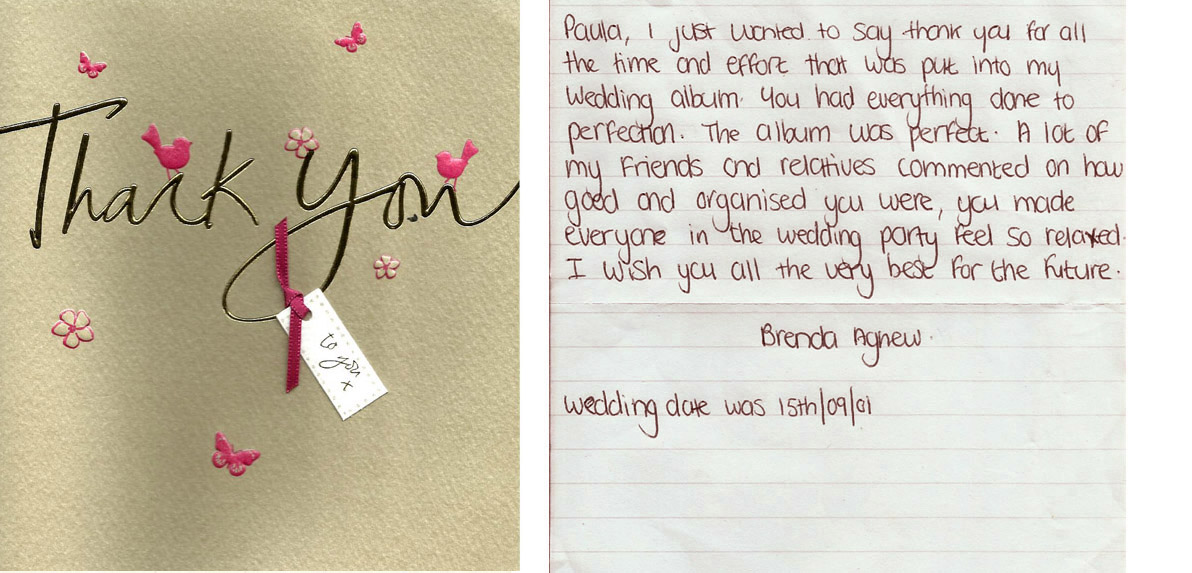 Thank you
to
you
x
Paula, I just wanted to say thank you for all
the time and effort that was put into my
wedding album. You had everything done to
perfection. The album was perfect. A lot of
my friends and relatives commented on how
good and organised you were, you made
everyone in the wedding party feel so relaxed.
I wish you all the very best for the future.
Brenda Agnew.
wedding date was 15th/09/01